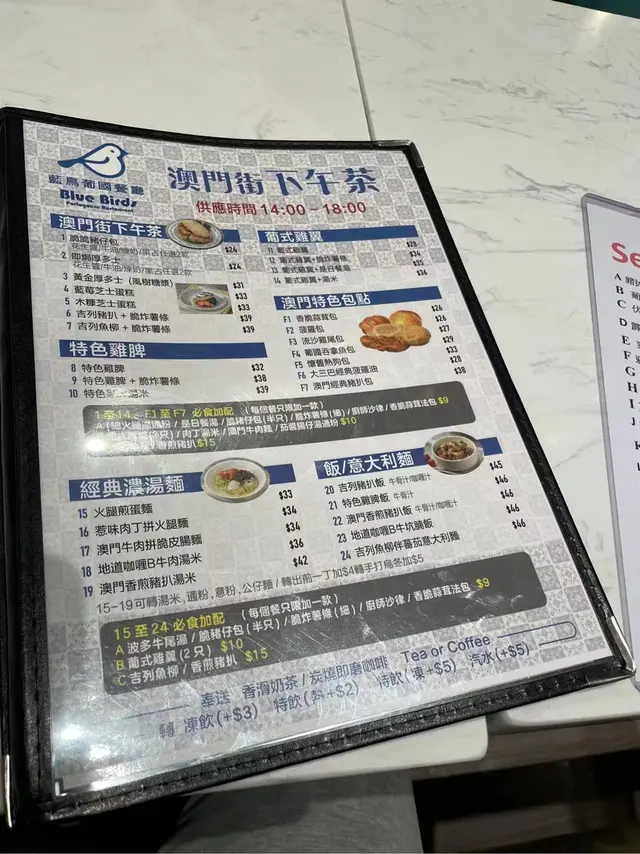 藍鳥葡國餐廳
Blue Birds
Portuguese Restaurant
澳門街下午茶
供應時間 14:00 - 18:00
澳門街下午茶
1 脆脆豬仔包
花生醬/牛油/煉奶/果占任選2款 $24
2 即焗厚多士
花生醬/牛油/煉奶/果占任選2款 $24
3 黃金厚多士 (風樹糖漿) $31
4 藍莓芝士蛋糕 $33
5 木糠芝士蛋糕 $33
6 吉列豬扒 + 脆炸薯條 $39
7 吉列魚柳 + 脆炸薯條 $39
特色雞脾
8 特色雞脾 $32
9 特色雞脾 + 脆炸薯條 $38
10 特色雞脾湯米 $39
葡式雞翼
11 葡式雞翼 $28
12 葡式雞翼+脆炸薯條 $34
13 葡式雞翼+是日餐湯 $35
14 葡式雞翼+湯米 $36
澳門特色包點
F1 香脆蒜茸包 $26
F2 菠蘿包 $26
F3 流沙雞尾包 $27
F4 葡國吞拿魚包 $29
F5 懷舊熱狗包 $33
F6 大三巴經典菠蘿油 $28
F7 澳門經典豬扒包 $38
1至14、F1 至 F7 必食加配 (每個餐只限加一款)
/ 是日餐湯 / 脆豬仔包(半只) / 脆炸薯條(細) / 廚師沙律 / 香脆蒜茸法包 $9
/ 肉丁湯米 / 澳門牛肉麵 / 茄醬腸仔湯通粉 $10
/ 香煎豬扒 $15
經典濃湯麵
15 火腿煎蛋麵 $33
16 惹味肉丁拼火腿麵 $34
17 澳門牛肉拼脆皮腸麵 $34
18 地道咖喱B牛肉湯米 $36
19 澳門香煎豬扒湯米 $42
15-19可轉湯米,通粉,意粉,公仔麵 / 轉出前一丁加$4轉手打烏冬加$5
飯/意大利麵
20 吉列豬扒飯 牛骨汁/咖喱汁 $45
21 特色雞脾飯 牛骨汁 $46
22 澳門香煎豬扒飯 牛骨汁/咖喱汁 $46
23 地道咖喱B牛坑腩飯 $46
24 吉列魚柳伴蕃茄意大利麵 $46
15 至 24 必食加配 (每個餐只限加一款)
A 波多牛尾湯 / 脆豬仔包(半只) / 脆炸薯條(細) / 廚師沙律 / 香脆蒜茸法包 $9
B 葡式雞翼(2只) $10
C 吉列魚柳 / 香煎豬扒 $15
奉送 香滑奶茶 / 炭燒即磨咖啡 Tea or Coffee
轉 凍飲(+$3) 特飲(熱+$2) 特飲(凍+$5) 汽水(+$5)
Se
A
B
C
D
E
F
G
H
I
J